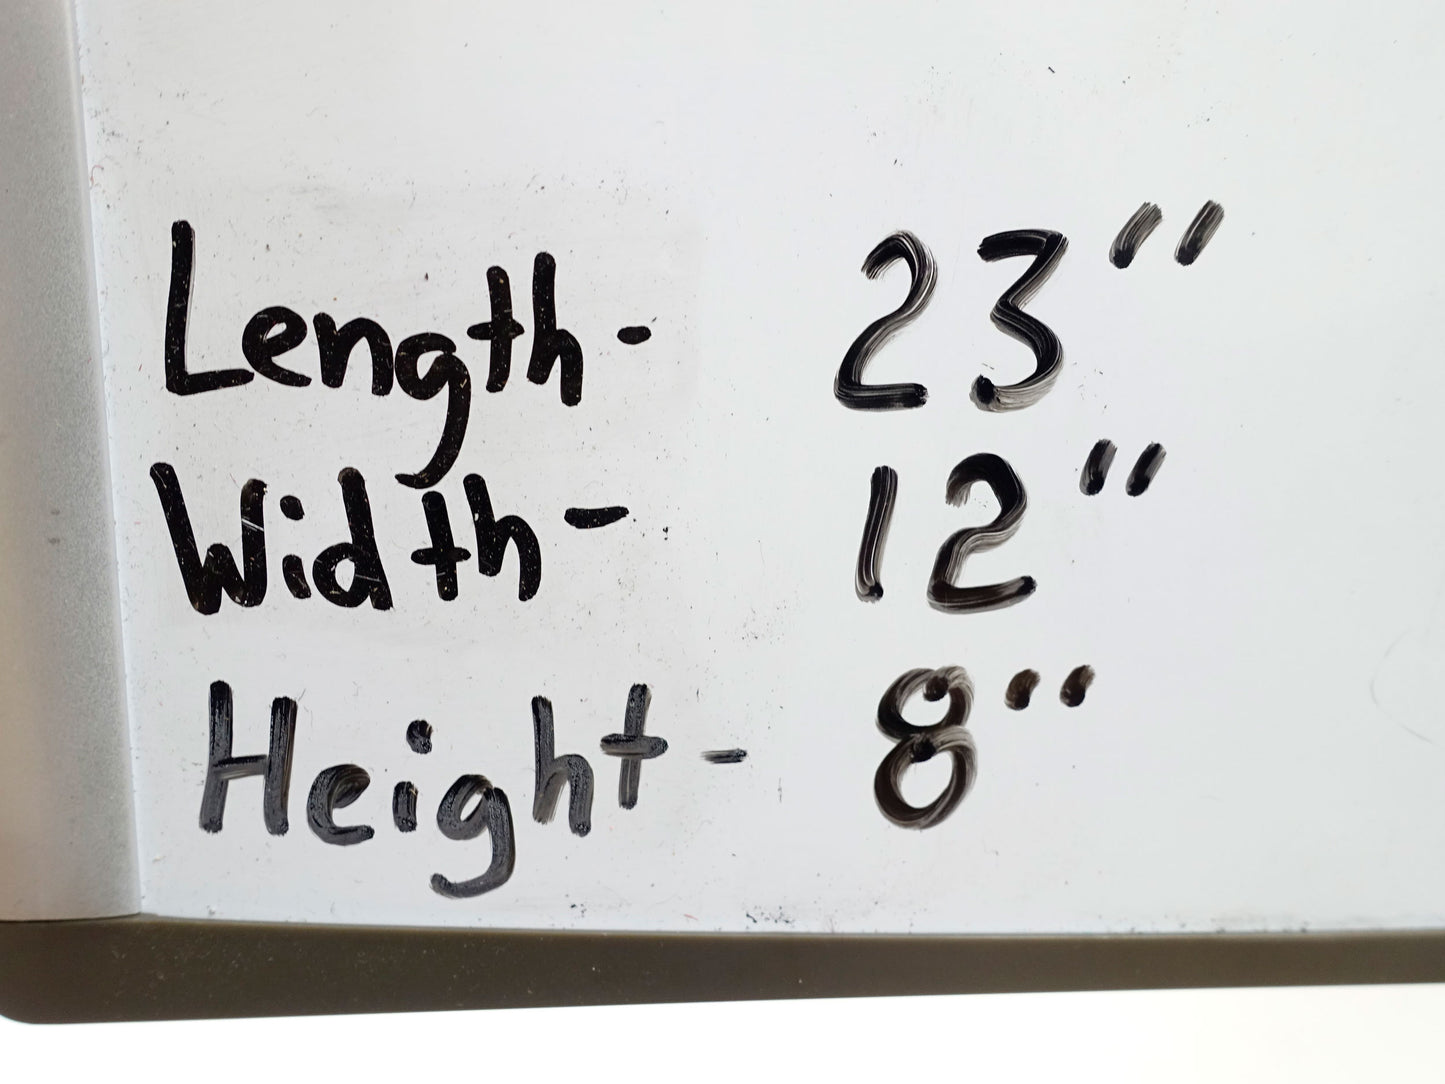 Length- 23"
Width- 12"
Height- 8"